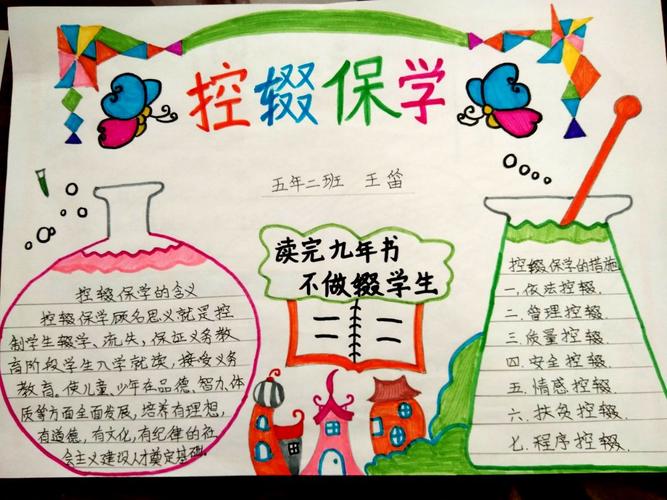 控辍保学
五年二班 王笛
读完九年书
不做辍学生
控辍保学的含义
控辍保学顾名思义就是控
制学生辍学、流失，保证义务教
育阶段学生入学就读，接受义务
教育。使儿童、少年在品德、智力、体
质等方面全面发展，培养有理想，
有道德，有文化，有纪律的社
会主义建设人才奠定基础。
控辍保学的措施
一.依法控辍.
二.管理控辍.
三.质量控辍.
四.安全控辍.
五.情感控辍.
六.扶贫控辍.
七.程序控辍.